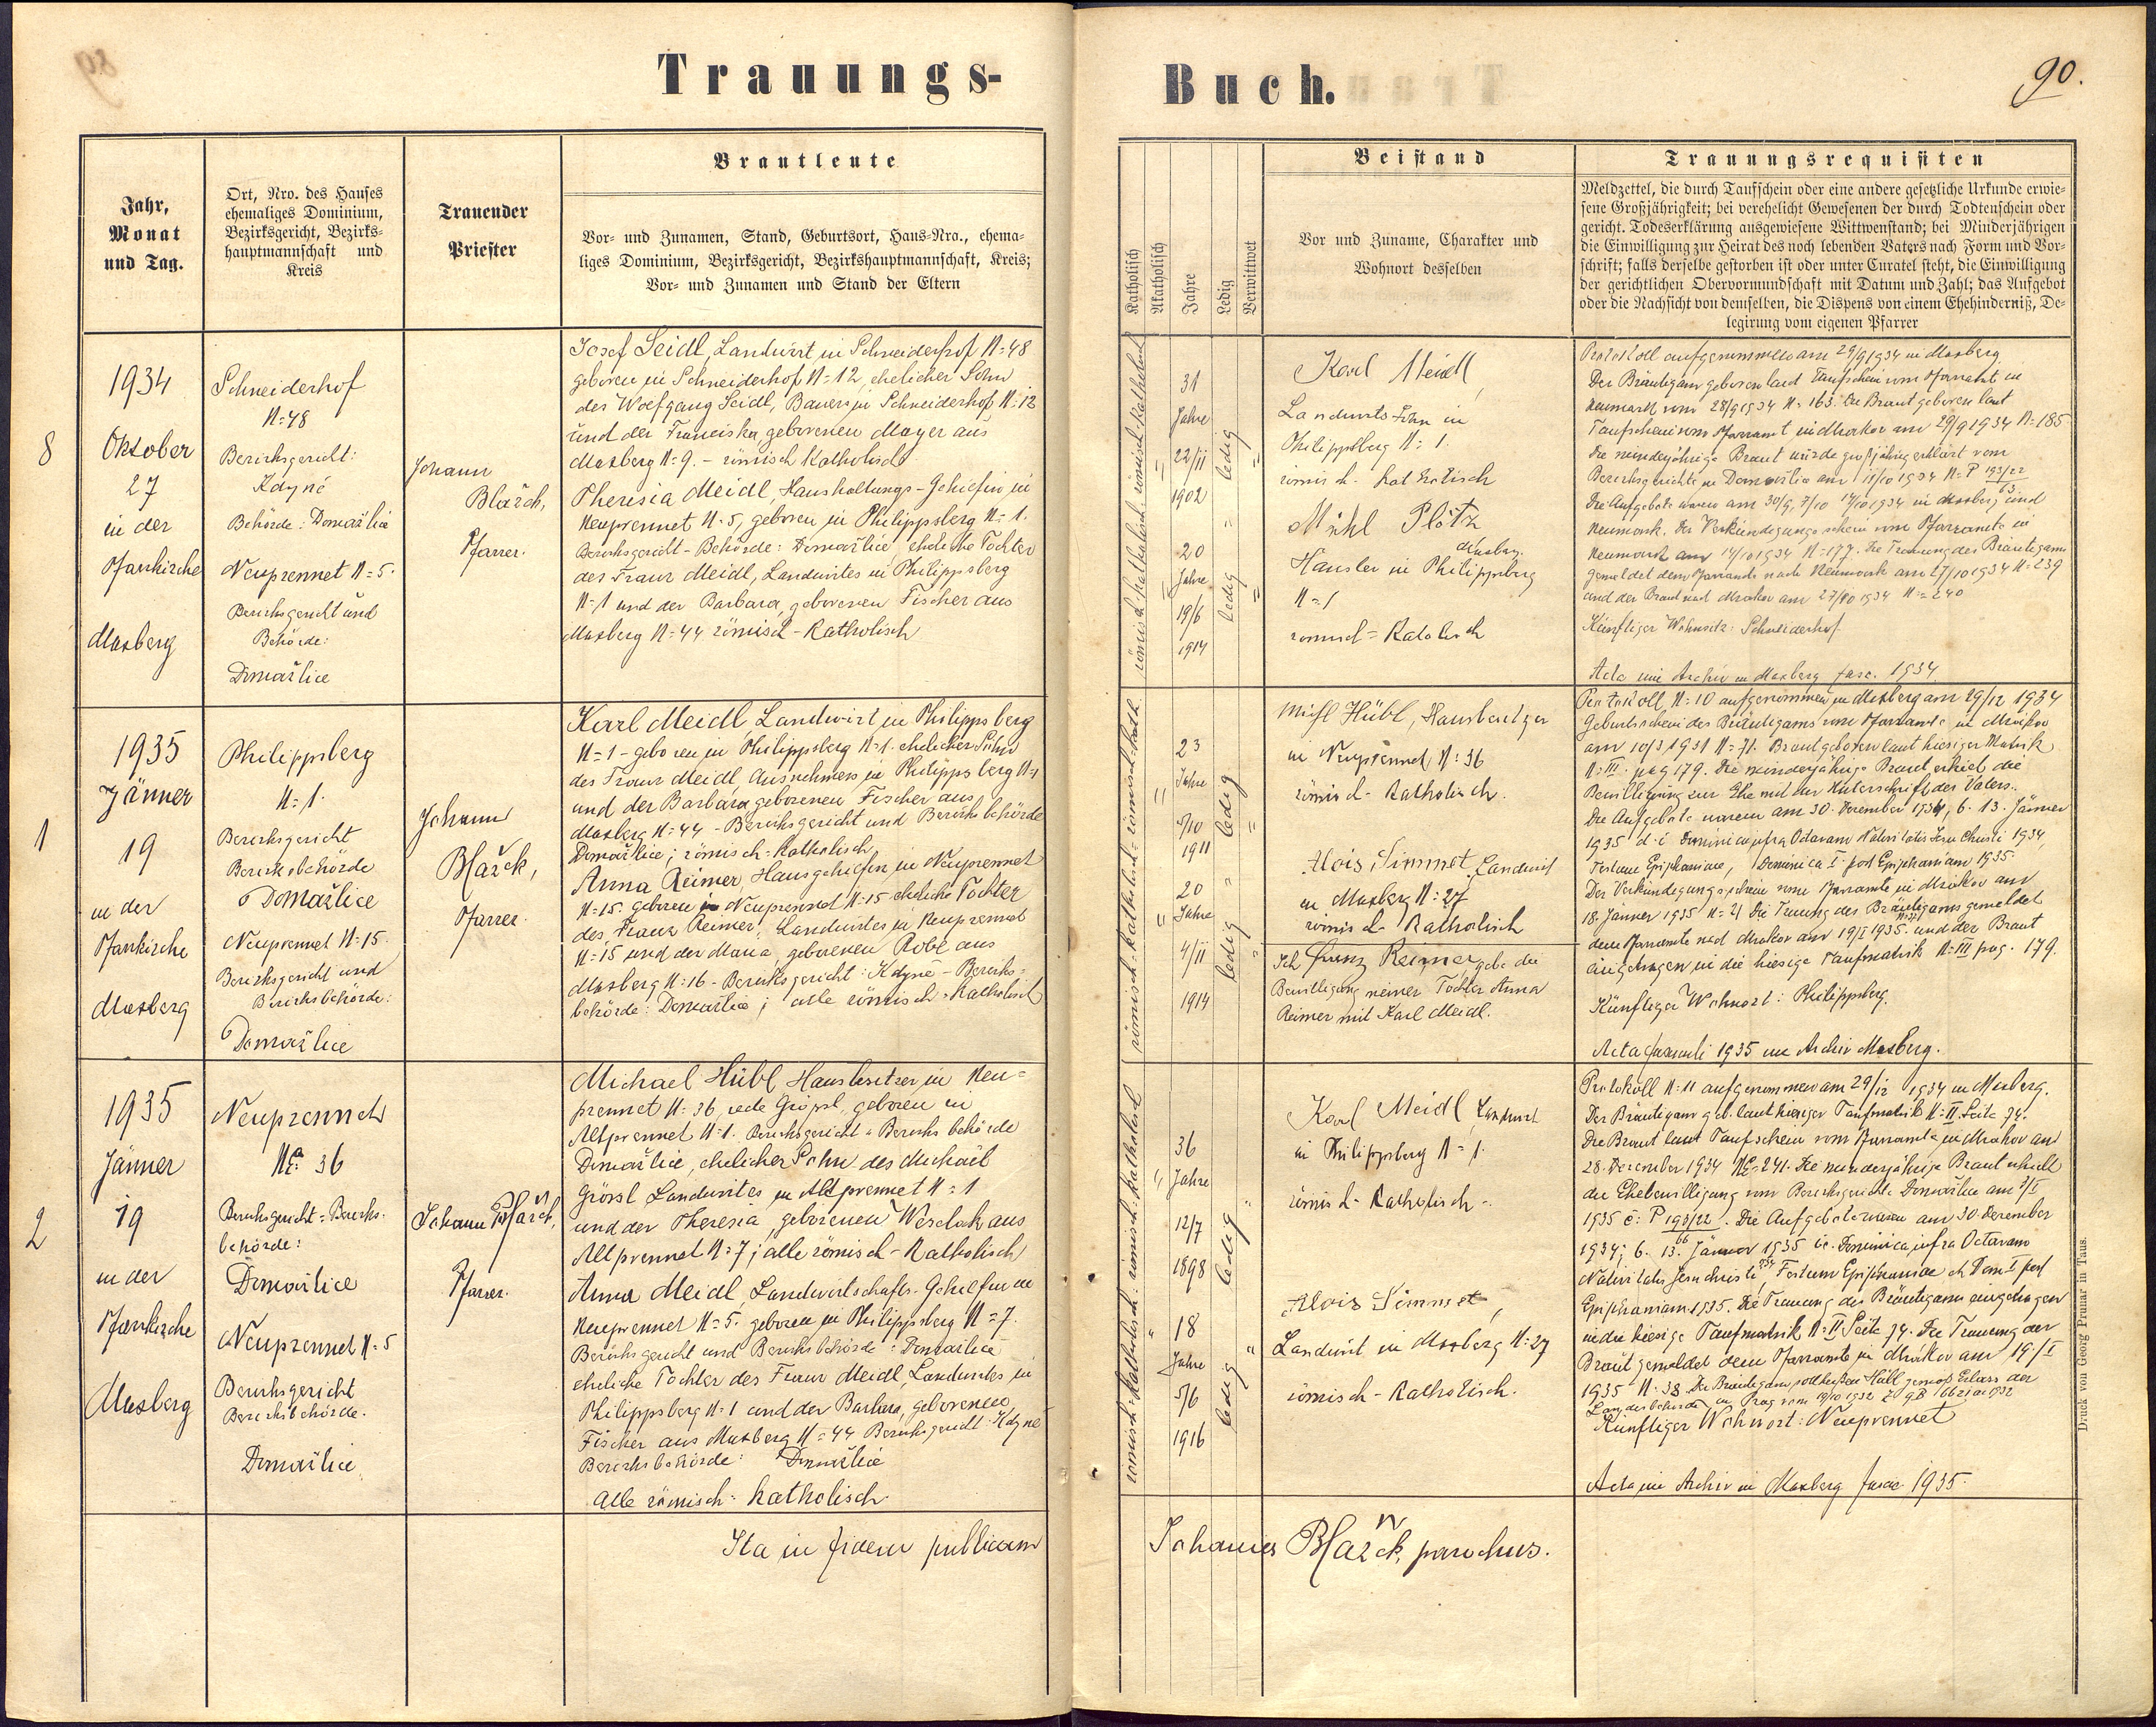 Trauungs-
Buch.
90.
Jahr,
Monat
und Tag.
Ort, Nro. des Hauses
ehemaliges Dominium,
Bezirksgericht, Bezirks-
hauptmannschaft und
Kreis
Trauender
Priester
Brautleute
Vor- und Zunamen, Stand, Geburtsort, Haus-Nro., ehema-
liges Dominium, Bezirksgericht, Bezirkshauptmannschaft, Kreis;
Vor- und Zunamen und Stand der Eltern
Katholisch
Akatholisch
Jahre
Ledig
Verwittwet
Beistand
Vor und Zuname, Charakter und
Wohnort desselben
Trauungsrequisiten
Meldzettel, die durch Taufschein oder eine andere gesetzliche Urkunde erwie-
sene Großjährigkeit; bei verehelicht Gewesenen der durch Todtenschein oder
gericht. Todeserklärung ausgewiesene Wittwenstand; bei Minderjährigen
die Einwilligung zur Heirat des noch lebenden Vaters nach Form und Vor-
schrift; falls derselbe gestorben ist oder unter Curatel steht, die Einwilligung
der gerichtlichen Obervormundschaft mit Datum und Zahl; das Aufgebot
oder die Nachsicht von demselben, die Dispens von einem Ehehinderniß, De-
legirung vom eigenen Pfarrer
8
1934
Oktober
27
in der
Pfarrkirche
Maxberg
Schneiderhof
N=48
Bezirksgericht:
Kdyně
Behörde: Domažlice
Neuprennet N=5.
Bezirksgericht und
Behörde:
Domažlice
Johann
Blažek,
Pfarrer.
Josef Seidl, Landwirt in Schneiderhof N=48
geboren in Schneiderhof N=12, ehelicher Sohn
des Wolfgang Seidl, Bauers in Schneiderhof N:12
und der Franciska geborenen Mayer aus
Maxberg N=9. - römisch Katholisch
Theresia Meidl, Haushaltungs-Gehilfin in
Neuprennet N.5, geboren in Philippsberg N=1.
Bezirksgericht-Behörde: Domažlice, eheliche Tochter
des Franz Meidl, Landwirtes in Philippsberg
N=1 und der Barbara, geborenen Fischer aus
Maxberg N=44 römisch-Katholisch
römisch-katholisch
31
Jahre
22/11
1902
ledig
20
Jahre
19/6
1914
ledig
Karl Meidl,
Landwirts-Sohn in
Philippsberg N=1.
römisch-katholisch
Michl Plötz
Häusler in Philippsberg
N=1
römisch=Katolisch
Protokoll aufgenommen am 29/9 1934 in Maxberg.
Der Bräutigam geboren laut Taufschein vom Pfarramt in
Neumark vom 28/9 1934 N=163. Die Braut geboren laut
Taufschein vom Pfarramt in Mrakov am 29/9 1934 N=185
Die minderjährige Braut wurde großjährig erklärt vom
Bezirksgerichte in Domažlice am 11/10 1934 N=P 193/22
63.
Die Aufgebote waren am 30/9, 7/10 14/10 1934 in Maxberg und
Neumark. Der Verkündigungsschein vom Pfarramte in
Neumark am 14/10 1934 N=177. Die Trauung des Bräutigams
gemeldet dem Pfarramte nach Neumark am 27/10 1934 N=239
und der Braut nach Mrakov am 27/10 1934 N=240
Künftiger Wohnsitz: Schneiderhof.
Acta im Archiv in Maxberg fasc. 1934.
1
1935
Jänner
19
in der
Pfarrkirche
Maxberg
Philippsberg
N=1.
Bezirksgericht
Bezirksbehörde
Domažlice
Neuprennet N=15.
Bezirksgericht und
Bezirksbehörde:
Domažlice
Johann
Blažek,
Pfarrer.
Karl Meidl, Landwirt in Philippsberg
N=1 - geboren in Philippsberg N=1. ehelicher Sohn
des Franz Meidl, Ausnehmers in Philippsberg N=1
und der Barbara geborenen Fischer aus
Maxberg N=44 - Bezirksgericht und Bezirksbehörde
Domažlice; römisch=Katholisch
Anna Reimer, Hausgehilfin in Neuprennet
N=15. geboren in Neuprennet N=15 eheliche Tochter
des Franz Reimer, Landwirtes in Neuprennet
N=15 und der Maria, geborenen Robl aus
Maxberg N=16 - Bezirksgericht: Kdyne - Bezirks=
behörde: Domažlice; alle römisch-Katholisch
23
Jahre
5/10
1911
ledig
20
Jahre
4/11
1914
ledig
Michl Hübl, Hausbesitzer
in Neuprennet, N=36
römisch-Katholisch.
Alois Simmet, Landwirt
in Maxberg N=27
römisch-Katholisch
Ich Franz Reimer, gebe die
Bewilligung meiner Tochter Anna
Reimer mit Karl Meidl.
Protokoll, N=10 aufgenommen in Maxberg am 29/12 1934
Geburtsschein des Bräutigams vom Pfarramte in Mrakov
am 10/3 1931 N=71. Braut geboren laut hiesiger Matrik
N=III. pag 179. Die minderjährige Braut erhielt die
Bewilligung zur Ehe mit der Unterschrift des Vaters.
Die Aufgebote waren am 30. Dezember 1934, 6. 13. Jänner
1935 d. i. Dominica infra Octavam Nativitatis Jesu Christi 1934,
Festum Epiphaniae, Dominica I. post Epiphaniam 1935.
Der Verkündigungsschein vom Pfarramte in Mrakov am
18. Jänner 1935 N=21 Die Trauung des Bräutigams gemeldet
dem Pfarramte nach Mrakov am 19/I 1935. und der Braut
eingetragen in die hiesige Taufmatrik N=III pag. 179.
Künftiger Wohnort: Philippsberg.
Acta 1935 im Archiv Maxberg.
2
1935
Jänner
19
in der
Pfarrkirche
Maxberg
Neuprennet
NC: 36
Bezirksgericht=Bezirks-
behörde:
Domažlice
Neuprennet N=5
Bezirksgericht
Bezirksbehörde.
Domažlice
Johann Blažek,
Pfarrer.
Michael Hübl, Hausbesitzer in Neu=
prennet N=36, rede Grössl, geboren in
Altprennet N=1. Bezirksgericht=Bezirksbehörde
Domažlice, ehelicher Sohn des Michael
Grössl Landwirtes in Altprennet N=1
und der Theresia, geborenen Weselak aus
Altprennet N=7; alle römisch-Katholisch
Anna Meidl, Landwirtschafts-Gehilfin in
Neuprennet N=5. geboren in Philippsberg N=7.
Bezirksgericht und Bezirksbehörde: Domažlice
eheliche Tochter des Franz Meidl, Landwirtes in
Philippsberg N=1 und der Barbara, geborenen
Fischer aus Maxberg N=44 Bezirksgericht: Kdyne
Bezirksbehörde: Domažlice
Alle römisch-katholisch.
36
Jahre
12/7
1898
ledig
18
Jahre
5/6
1916
ledig
Karl Meidl, Landwirt
in Philippsberg N=1.
römisch-Katholisch-
Alois Simmet,
Landwirt in Maxberg N:27
römisch-Katholisch.
Protokoll N=11 aufgenommen am 29/12 1934 in Maxberg.
Der Bräutigam geb. laut hiesiger Taufmatrik N=II. Seite 74.
Die Braut laut Taufschein vom Pfarramte in Mrakov am
28. Dezember 1934 NC=241. Die minderjährige Braut erhielt
die Ehebewilligung vom Bezirksgerichte Domažlice am
1935 č: P 193/22. Die Aufgebote waren am 30. Dezember
66
1934; 6. 13. Jänner 1935 Dominica infra Octavam
Nativitatis Jesu Christi Festum Epiphaniae et Dom I post
Epiphaniam 1935. Die Trauung des Bräutigams eingetragen
in die hiesige Taufmatrik N=II Seite 74. Die Trauung der
Braut gemeldet dem Pfarramte in Mrakov am 19/I
1935 N=38. Der Bräutigam soll heißen Hübl gemäß Erlass der
Landesbehörde in Prag vom
Künftiger Wohnort: Neuprennet
Acta im Archiv in Maxberg fasc. 1935.
Ita in fidem publicam
Johannes Blažek, parochus.
Druck von Georg Prunar in Taus.